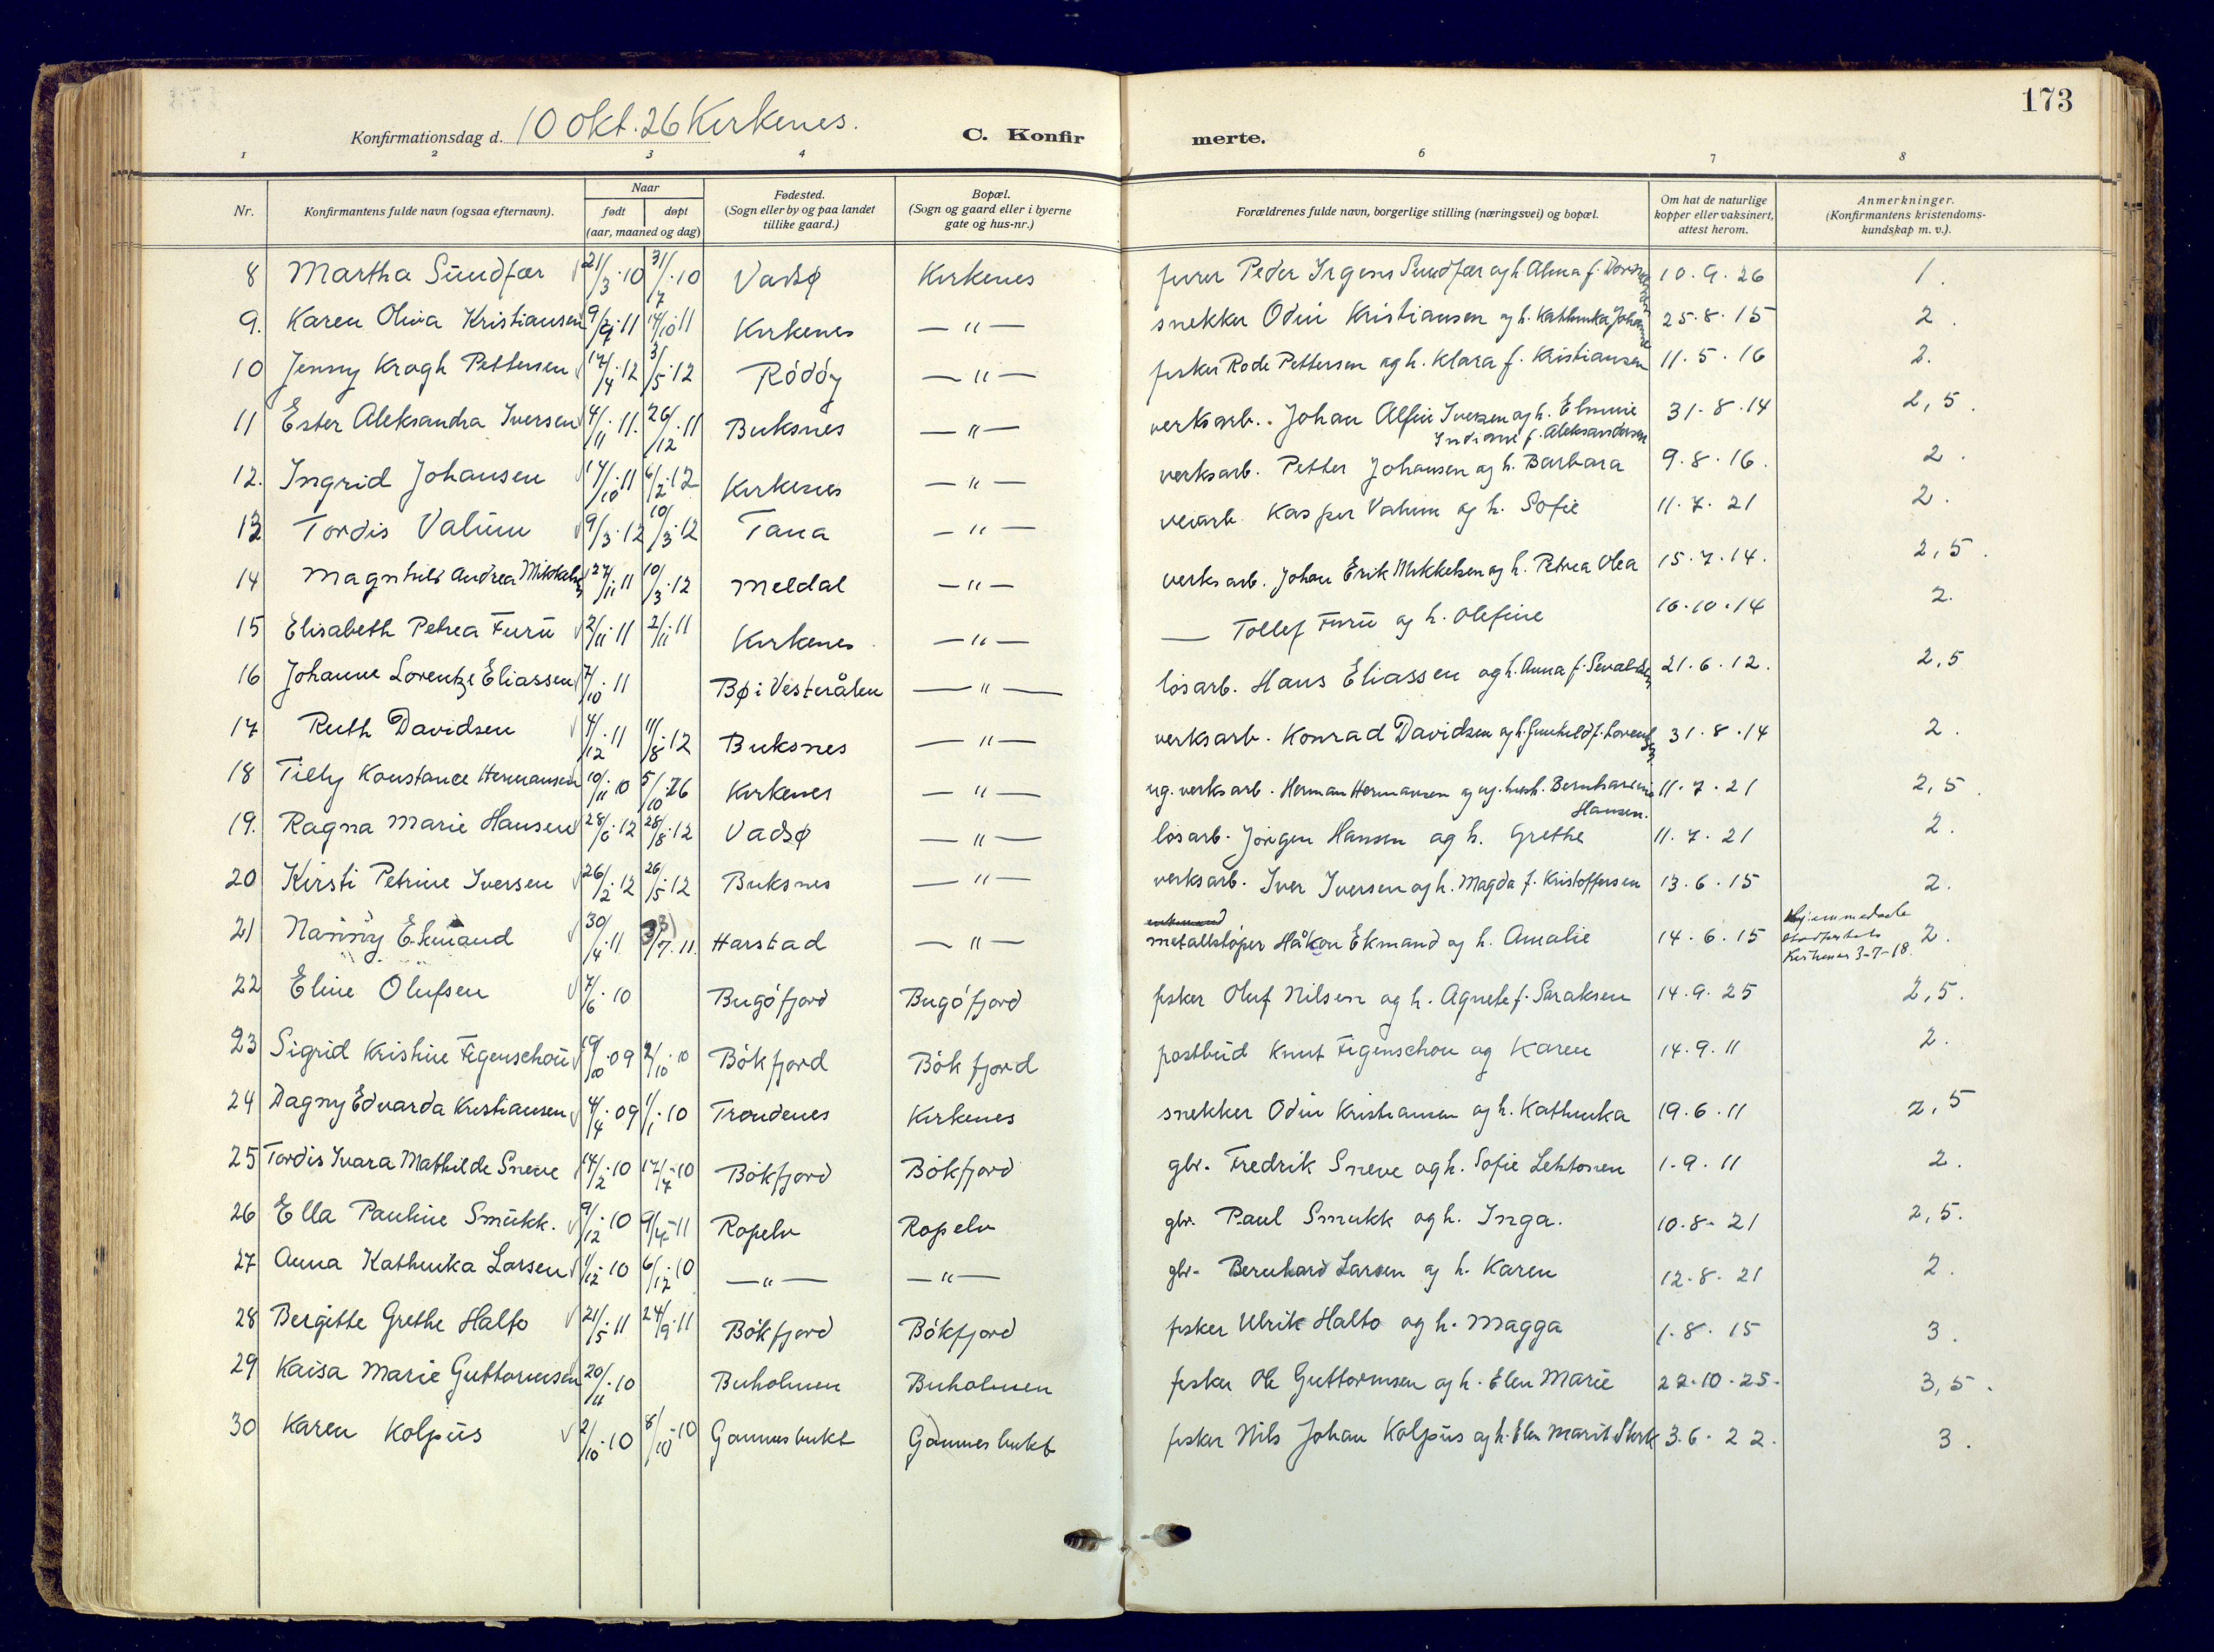 173
Konfirmationsdag d. 10 okt. 26 Kirkenes. C. Konfirmerte.
1 2 3 4 6 7 8
Nr. Konfirmantens fulde navn (ogsaa efternavn). Naar født døpt (aar, maaned og dag) Fødested. (Sogn eller by og paa landet tillike gaard.) Bopæl. (Sogn og gaard eller i byerne gate og hus-nr.) Forældrenes fulde navn, borgerlige stilling (næringsvei) og bopæl. Om hat de naturlige kopper eller vaksinert, attest herom. Anmerkninger. (Konfirmantens kristendoms-kundskap m. v.).
8 Martha Sundfær 21/3.10 31/7.10 Vadsø Kirkenes furer Peder Irgens Sundfær og h. Alma f. 10.9.26 1.
9. Karen Oliva Kristiansen 9/9.11 14/10.11 Kirkenes —"— snekker Odin Kristiansen og h. Kathinka Johanne 25.8.15 2.
10 Jenny Krogh Pettersen 17/4.12 3/5.12 Rödöy —"— fisker Rode Pettersen og h. Klara f. Kristiansen 11.5.16 2.
11 Ester Aleksandra Iversen 4/11.11. 26/12.11 Buksnes —"— verksarb. Johan Alfin Iversen og h. Elmine Indiane f. Aleksandersen 31.8.14 2,5.
12. Ingrid Johansen 17/10.11 6/2.12 Kirkenes —"— verksarb. Petter Johansen og h. Barbara 9.8.16. 2.
13 Tordis Valum 9/3.12 10/3.12 Tana —"— veiarb. Kasper Valum og h. Sofie 11.7.21 2.
14 Magnhild Andrea Mikkelsen 27/11.11 10/3.12 Meldal —"— verksarb. Johan Erik Mikkelsen og h. Petrea Olea 15.7.14. 2,5.
15 Elisabeth Petrea Furu 2/11.11 2/11.11 Kirkenes —"— — Tollef Furu og h. Olefine 16.10.14 2.
16 Johanne Lorentze Eliassen 7/10.11 Bø i Vesterålen —"— løsarb. Hans Eliassen og h. Anna f. Sevaldsen 21.6.12. 2,5
17 Ruth Davidsen 4/12.11 11/8.12 Buksnes —"— verksarb. Konrad Davidsen og h. Gunhild f. Lorentzen 31.8.14 2.
18 Tilly Konstance Hermansen 10/11.10 5/10.26 Kirkenes —"— ug. verksarb. Herman Hermansen og ug. hush. Bernhardine Hansen. 11.7.21 2,5.
19. Ragna Marie Hansen 28/6.12 28/8.12 Vadsø —"— løsarb. Jörgen Hansen og h. Grethe 11.7.21 2.
20 Kirsti Petrine Iversen 26/2.12 26/5.12 Buksnes —"— verksarb. Iver Iversen og h. Magda f. Kristoffersen 13.6.15 2.
21 Nanny Ekmand 30/4.11 /7.11. Harstad —"— metallsløper Håkon Ekmand og h. Amalie 14.6.15 Hjemmedøbt Kirkenes 3-7-18. 2.
22 Eline Olufsen 7/6.10 Bugöfjord Bugöfjord fisker Oluf Nilsen og h. Agnete f. Saraksen 14.9.25 2,5.
23 Sigrid Kristine Figenschou 19/10.09 2/10.10 Bökfjord Bökfjord postbud Knut Figenschou og Karen 14.9.11 2.
24 Dagny Edvarda Kristiansen 4/4.09 1/1.10 Trondenes Kirkenes snekker Odin Kristiansen og h. Kathinka 19.6.11 2,5
25 Tordis Ivara Mathilde Sneve 14/2.10 17/7-10 Bökfjord Bökfjord gbr. Fredrik Sneve og h. Sofie Lehtonen 1.9.11 2.
26 Ella Pauline Smukk. 9/12.10 9/4-11 Ropelv Ropelv gbr. Paul Smukk og h. Inga. 10.8-21 2,5.
27 Anna Kathinka Larsen 1/12.10 6/12.10 —"— —"— gbr. Bernhard Larsen og h. Karen 12.8.21 2.
28 Bergitte Grethe Halto 21/5.11 24/9.11 Bökfjord Bökfjord fisker Ulrik Halto og h. Magga 1.8.15 3.
29 Kaisa Marie Guttormsen 20/11.10 Buholmen Buholmen fisker Ole Guttormsen og h. Elen Marie 22.10.25. 3,5.
30 Karen Kolpus 2/10.10 8/10-10 Gannesbukt Gannesbukt fisker Nils Johan Kolpus og h. Elen Marit Stork 3.6.22. 3.